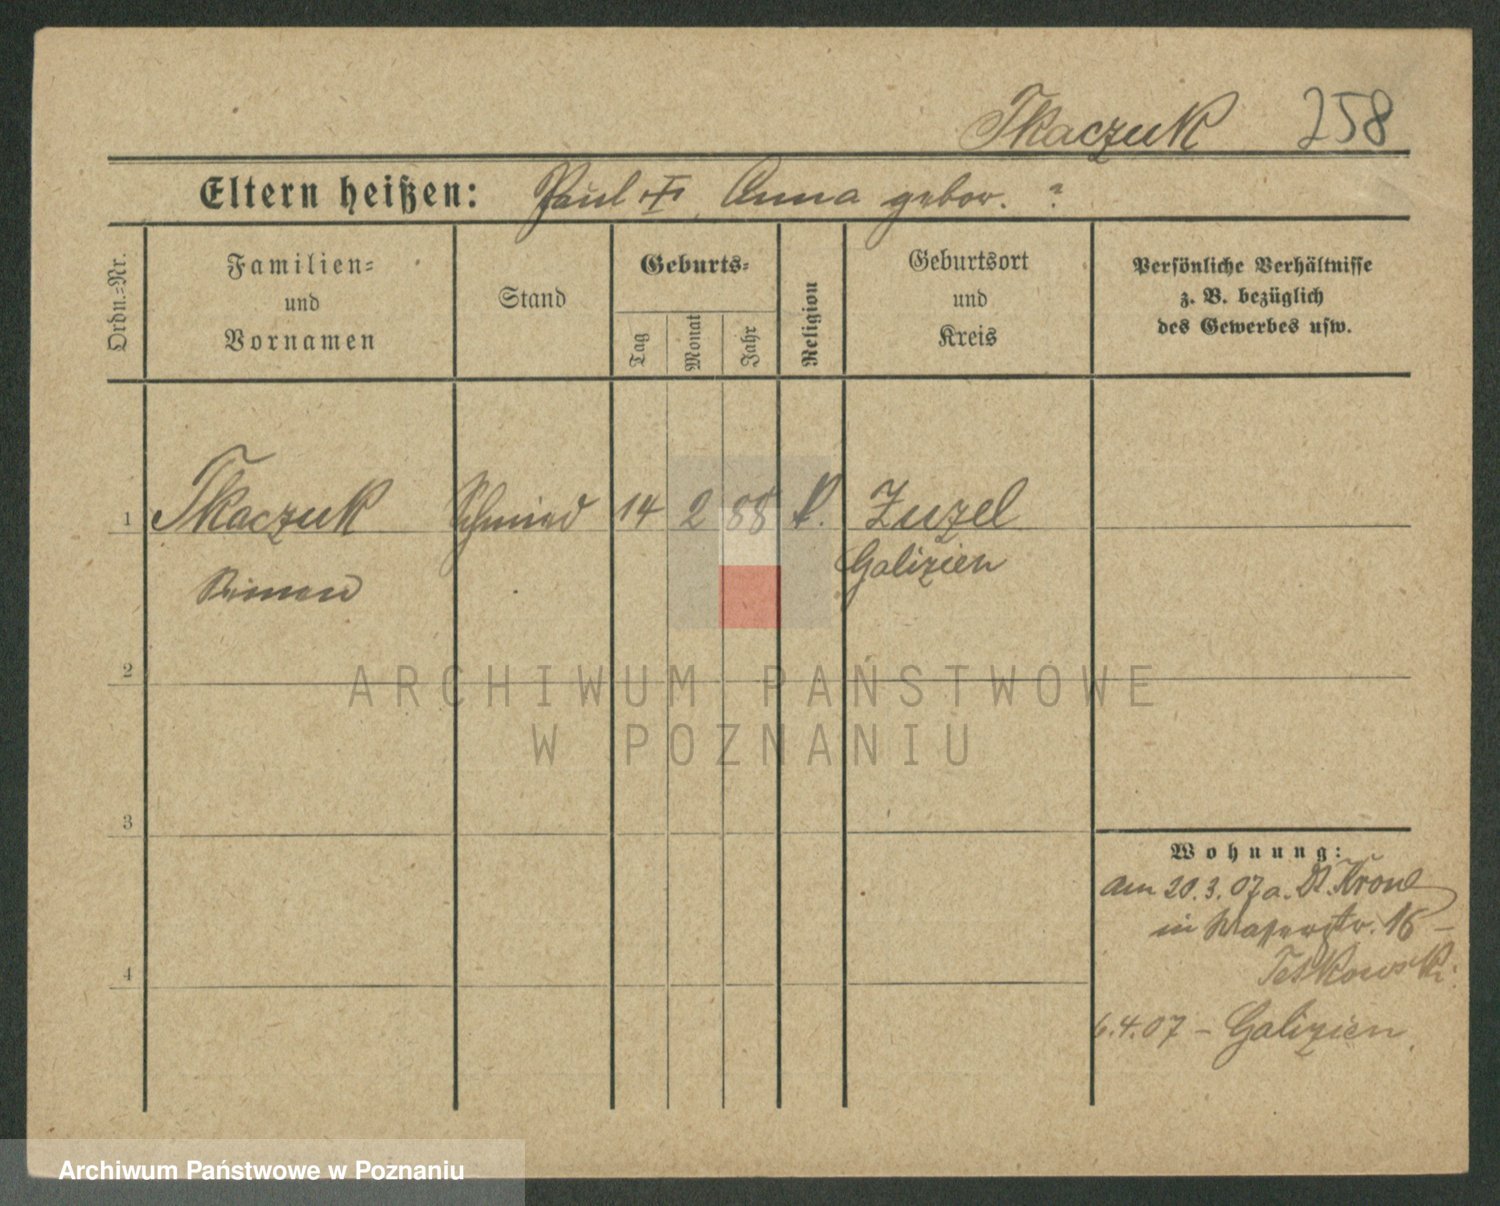 Tkaczuk 258
Eltern heißen: Paul †, Anna gebor. ?
Ordn.-Nr.
Familien-
und
Vornamen
Stand
Geburts-
Tag
Monat
Jahr
Religion
Geburtsort
und
Kreis
Persönliche Verhältnisse
z. B. bezüglich
des Gewerbes usw.
1 Tkaczuk Schmied 14 2 88 k. Zuzel
Galizien
2
3
4
Wohnung:
am 20.3.07 a. D. Krone
in Wasserstr. 16 -
Teskowski.
6.4.07 - Galizien.
ARCHIWUM PAŃSTWOWE
W POZNANIU
Archiwum Państwowe w Poznaniu